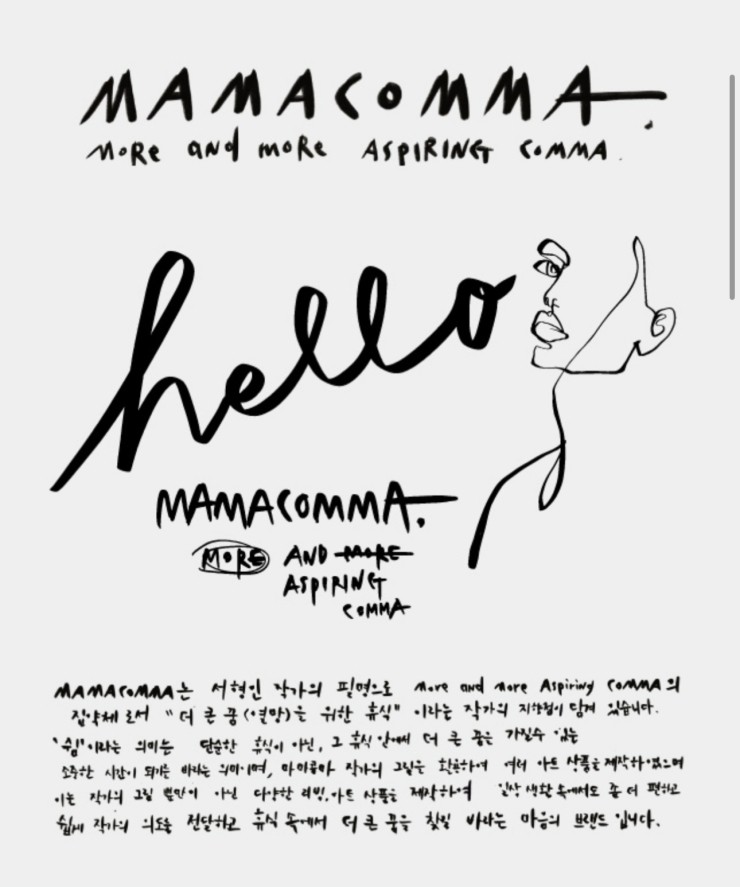 MAMACOMMA.
MoRe and moRe ASPIRING COMMA.
hello
MAMACOMMA.
MoRE AND MoRE
ASPIRING
COMMA
MAMACOMMA는 서형인 작가의 필명으로 More and more Aspiring COMMA의
집약체로서 "더 큰 꿈(열망)을 위한 휴식" 이라는 작가의 지향점이 담겨 있습니다.
"쉼"이라는 의미는 단순한 휴식이 아닌, 그 휴식 안에서 더 큰 꿈을 가질수 있는
소중한 시간이 되기를 바라는 의미이며, 작가의 그림을 활용하여 여러 아트 상품을 제작하였으며
이는 작가의 그림 뿐만이 아닌 다양한 리빙,아트 상품을 제작하여 일상생활 속에서도 좀 더 편하고
쉽게 작가의 의도를 전달하고 휴식 속에서 더 큰 꿈을 찾길 바라는 마음의 브랜드 입니다.